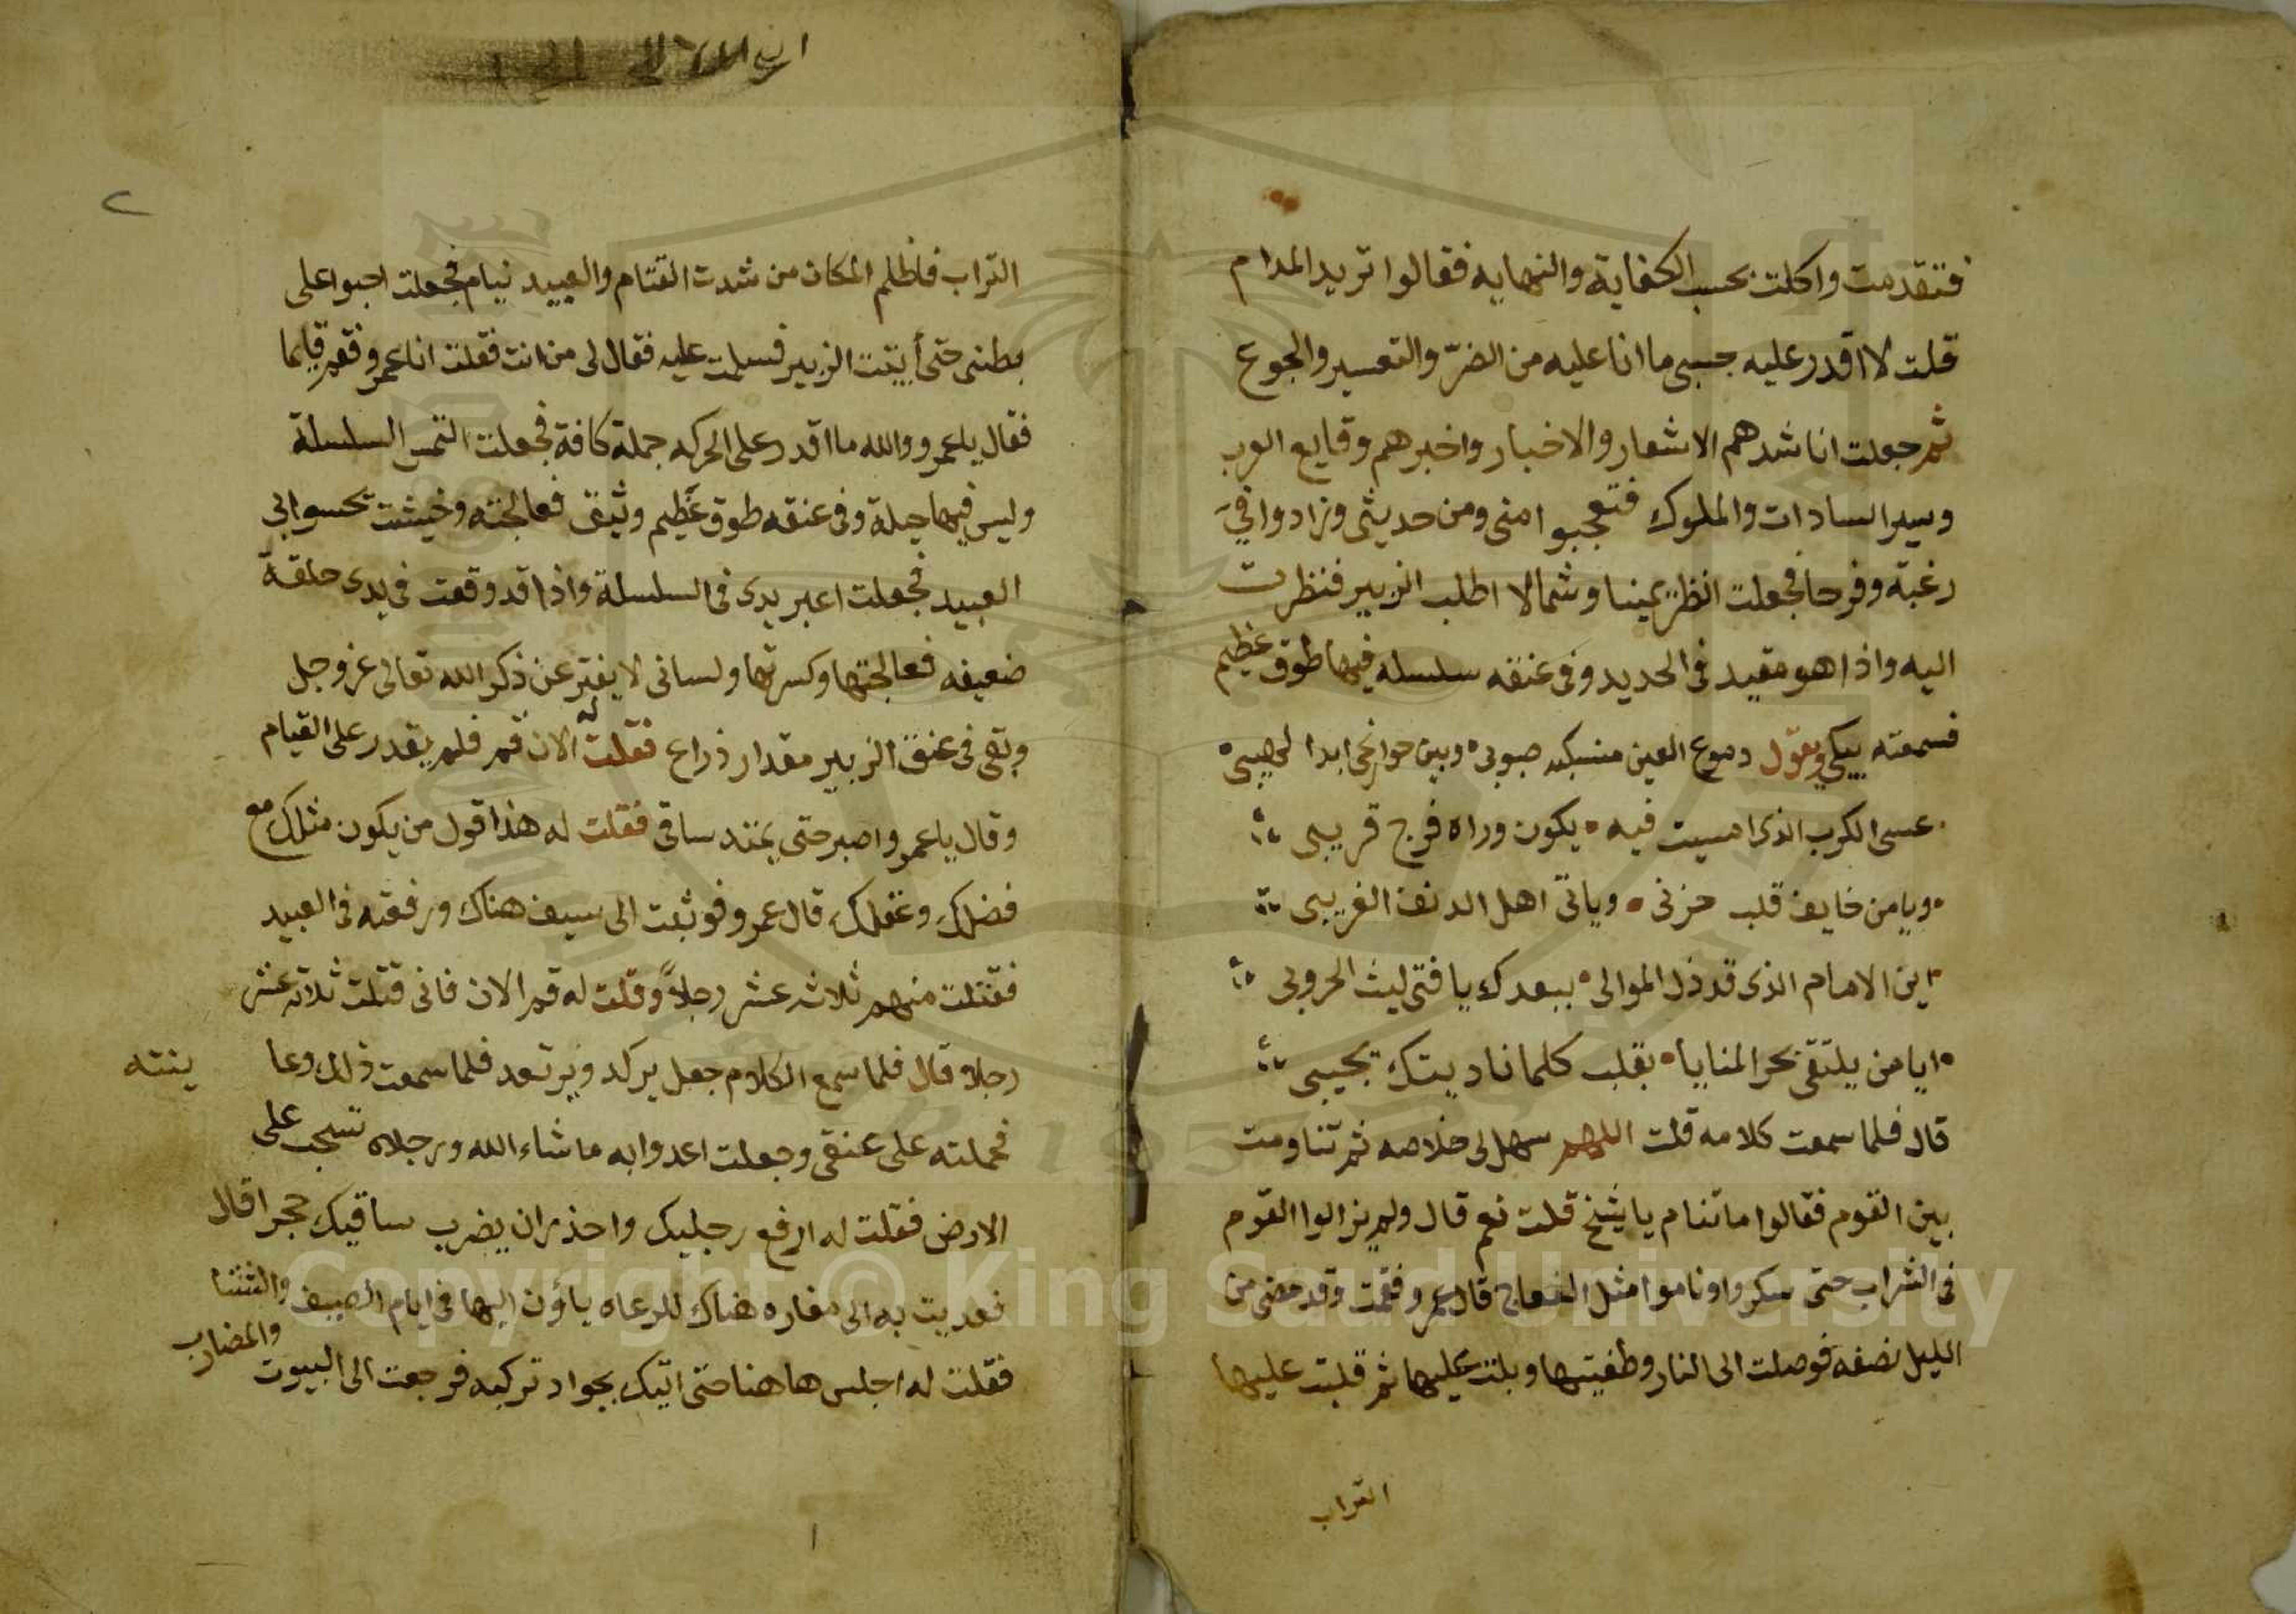 فتقدمت واكلت بحسب الكفاية والنهايه فقالوا تريد المدام
قلت لا اقدر عليه حسبي ما انا عليه من الضرّ والتعسير والجوع
ثم جعلت اناشدهم الاشعار والاخبار واخبرهم وقايع العرب
وسير السادات والملوك فتعجبوا مني ومن حديثي وزادوا فيّ
رغبة وفرحا فجعلت انظر يمينا وشمالا اطلب الزبير فنظرت
اليه واذا هو مقيد في الحديد وفي عنقه سلسله فيها طوق عظيم
فسمعته يبكي ويقول دموع العين منسبكه صبوبي وبين جوانحي ابدا لهيبي
عسى الكرب الذي امسيت فيه يكون وراه فرج قريبي
ويا من خايف قلب حزني وياتي اهل الدنف الغريبي
اين الامام الذي قد ذل الموالي ببعدك يا فتى ليث الحروبي
ايا من يلتقي بحر المنايا بقلب كلما ناديتك تجيبي
قال فلما سمعت كلامه قلت اللهم سهل لي خلاصه ثم تناومت
بين القوم فقالوا ما تنام يا شيخ قلت نعم قال ولم يزالوا القوم
في الشراب حتى سكروا وناموا مثل النعاج قال عمرو فقمت وقد مضى من
الليل نصفه فوصلت الى النار وطفيتها وبلت عليها ثم قلبت عليها
التراب
٢
التراب فاظلم المكان من شدت القتام والعبيد نيام فجعلت احبوا على
بطني حتى أتيت الزبير فسلمت عليه فقال لي من انت فقلت انا عمرو فقم قايما
فقال يا عمرو والله ما اقدر على الحركه جملة كافة فجعلت التمس السلسلة
وليس فيها حيلة وفي عنقه طوق عظيم وثيق فعالجته وخيشت تحسوا بي
العبيد فجعلت اعبر يدي في السلسلة واذا قد وقعت في يدي حلقة
ضعيفه فعالجتها وكسرتها ولساني لا يفتر عن ذكر الله تعالى عز وجل
وبقي في عنق الزبير مقدار ذراع فقلت له الان قم فلم يقدر على القيام
وقال يا عمرو اصبر حتى يمتد ساقي فقلت له هذا قول من يكون مثلك مع
فضلك وعقلك قال عمرو فوثبت الى سيف هناك ورفعته في العبيد
فقتلت منهم ثلاثه عشر رجلاً وقلت له قم الان فاني قتلت ثلاثه عشر
رجلا قال فلما سمع الكلام جعل يركد ويرتعد فلما سمعت ذلك وعا
ينته
فحملته على عنقي وجعلت اعدوا به ما شاء الله ورجلاه تسحب على
الارض فقلت له ارفع رجليك واحذر ان يضرب ساقيك حجرا قال
فعديت به الى مغاره هناك للرعاه ياؤن اليها في ايام الصيف والشتا
فقلت له اجلس هاهنا حتى اتيك بجواد تركبه فرجعت الى البيوت والمضارب